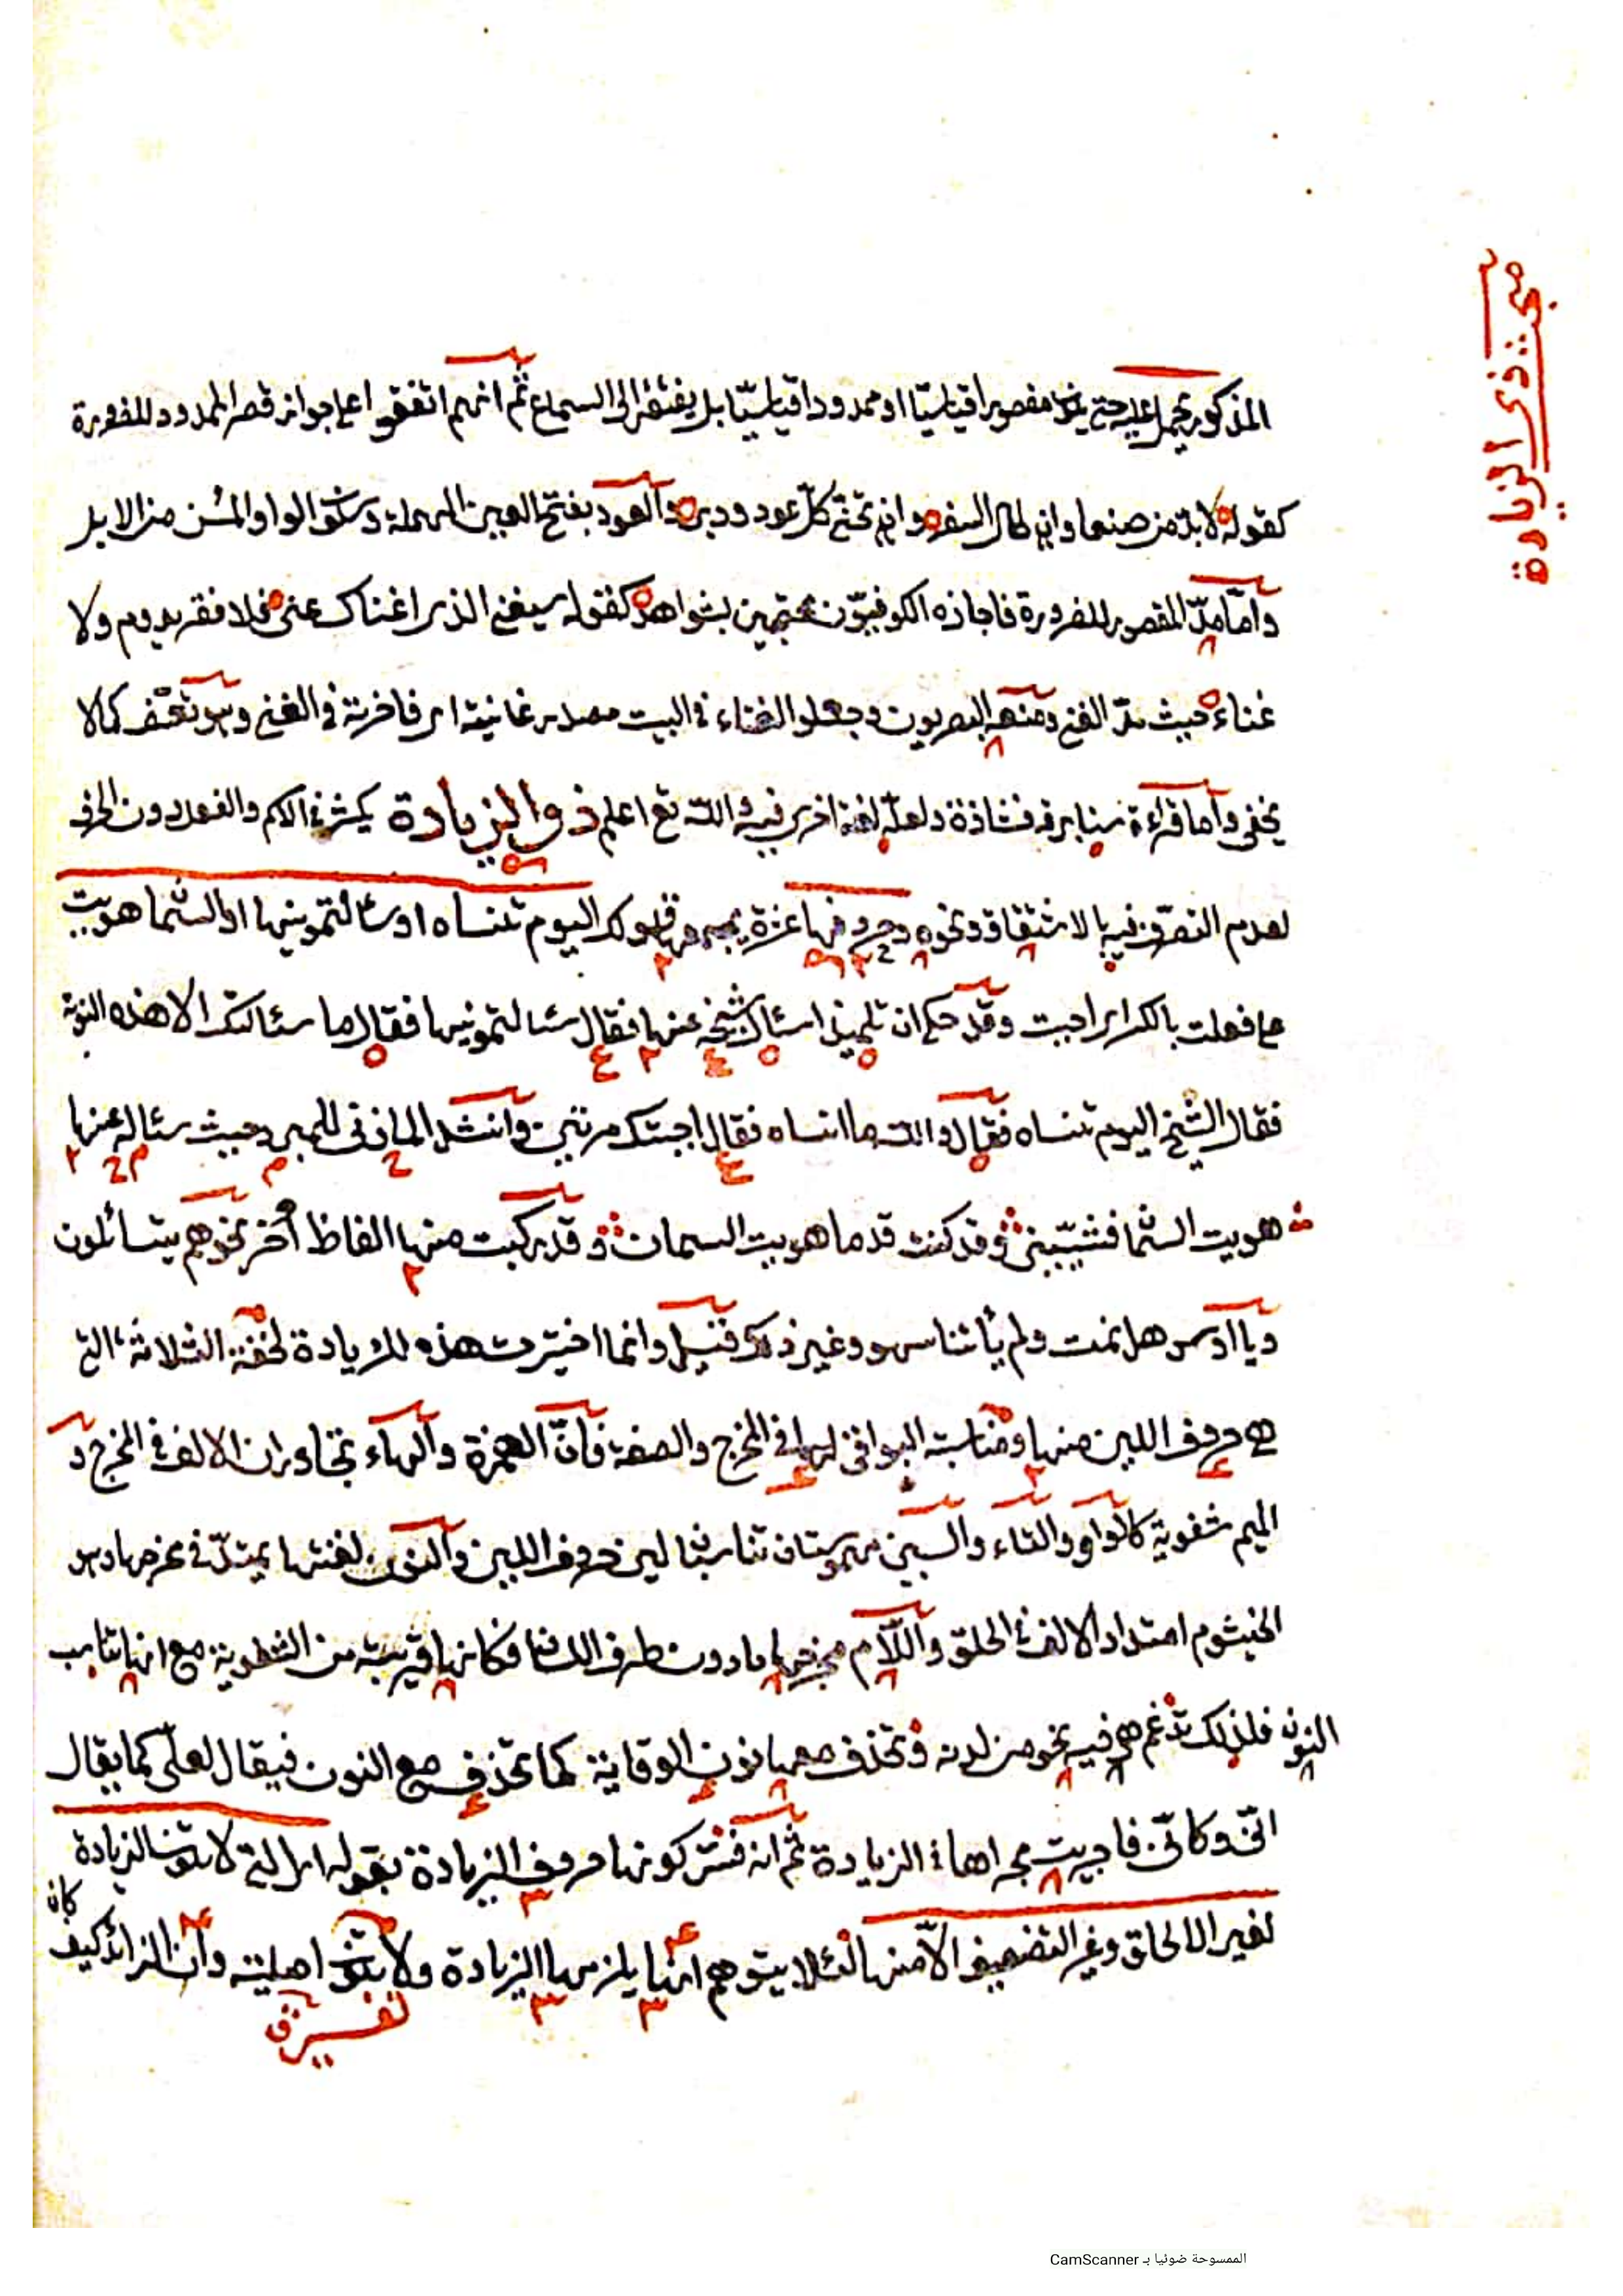 مبحث ذي الزيادة
المذكور يحمل عليه حتى يكون مقصورا قياسيّا او ممدودا قياسيّا بل يفتقر الى السماع ثم انهم اتفقوا على جواز قصر الممدود للضرورة
كقوله لا بدّ من صنعا وان طال السفر وان تحنّى كلّ عود ودبر والعود بفتح العين المهملة وسكون الواو المسن من الابل
وامّا مدّ المقصور للضرورة فاجازه الكوفيّون محتجين بشواهد كقوله سيغني الذي اغناك عني فلا فقر يدوم ولا
غناء حيث مدّ الغنى ومنعه البصريون وجعلوا الغناء في البيت مصدر غانيته اي فاخرته في الغنى وهو تعسّف كما لا
يخفى واما قراءة سنا برقه فشاذة ولعلّه لغة اخرى فيه والله تع اعلم ذو الزيادة يكثر في الاسم والفعل دون الحرف
لعدم التصرّف فيه بالاشتقاق ونحوه وحروفها عشرة يجمعها قولك اليوم تنساه او سئالتمونيها او السّما هويت
على فعلت بالكسر اي احببت وقد حكي ان تلميذا سئال شيخه عنها فقال سئالتمونيها فقال ما سئالتك الا هذه النوبة
فقال الشيخ اليوم تنساه فقال والله ما انساه فقال اجبتك مرتين وانشد المازني للمبرد حيث سئاله عنها
هويت السّما فشيّبنني وقد كنت قدما هويت السمان وقد ركبت منها الفاظ أخر نحو هم يتسائلون
ويا اوس هل نمت ولم يأتنا سهو وغير ذلك قيل وانما اختيرت هذه للزيادة لخفة الثلاثة التي
هي حروف اللين منها ومناسبة البواقي لها في المخرج والصفة فأنّ الهمزة والهاء تجاوران الالف في المخرج و
الميم شفوية كالواو والتاء والسين مهموستان تناسبان لين حروف اللين والنون لغنتها يمتدّ في مخرجها وهو
الخيشوم امتداد الالف في الحلق واللام مخرجها ما دون طرف اللسان فكانها قريبة من الشطرية مع انها تناسب
النون فلذلك تدغم هي فيه نحو من لدنه وتحذف معها نون الوقاية كما تحذف مع النون فيقال لعلّي كما يقال
انّي وكانّي فاجريت مجراها في الزيادة ثم انه فسّر كونها حروف الزيادة بقوله اى التي لا تكون الزيادة
لغير الالحاق وغير التضعيف الّا منها لئلا يتوهم انها يلزمها الزيادة ولا تكون اصلية وأن الزائد كيف كان
تفسير